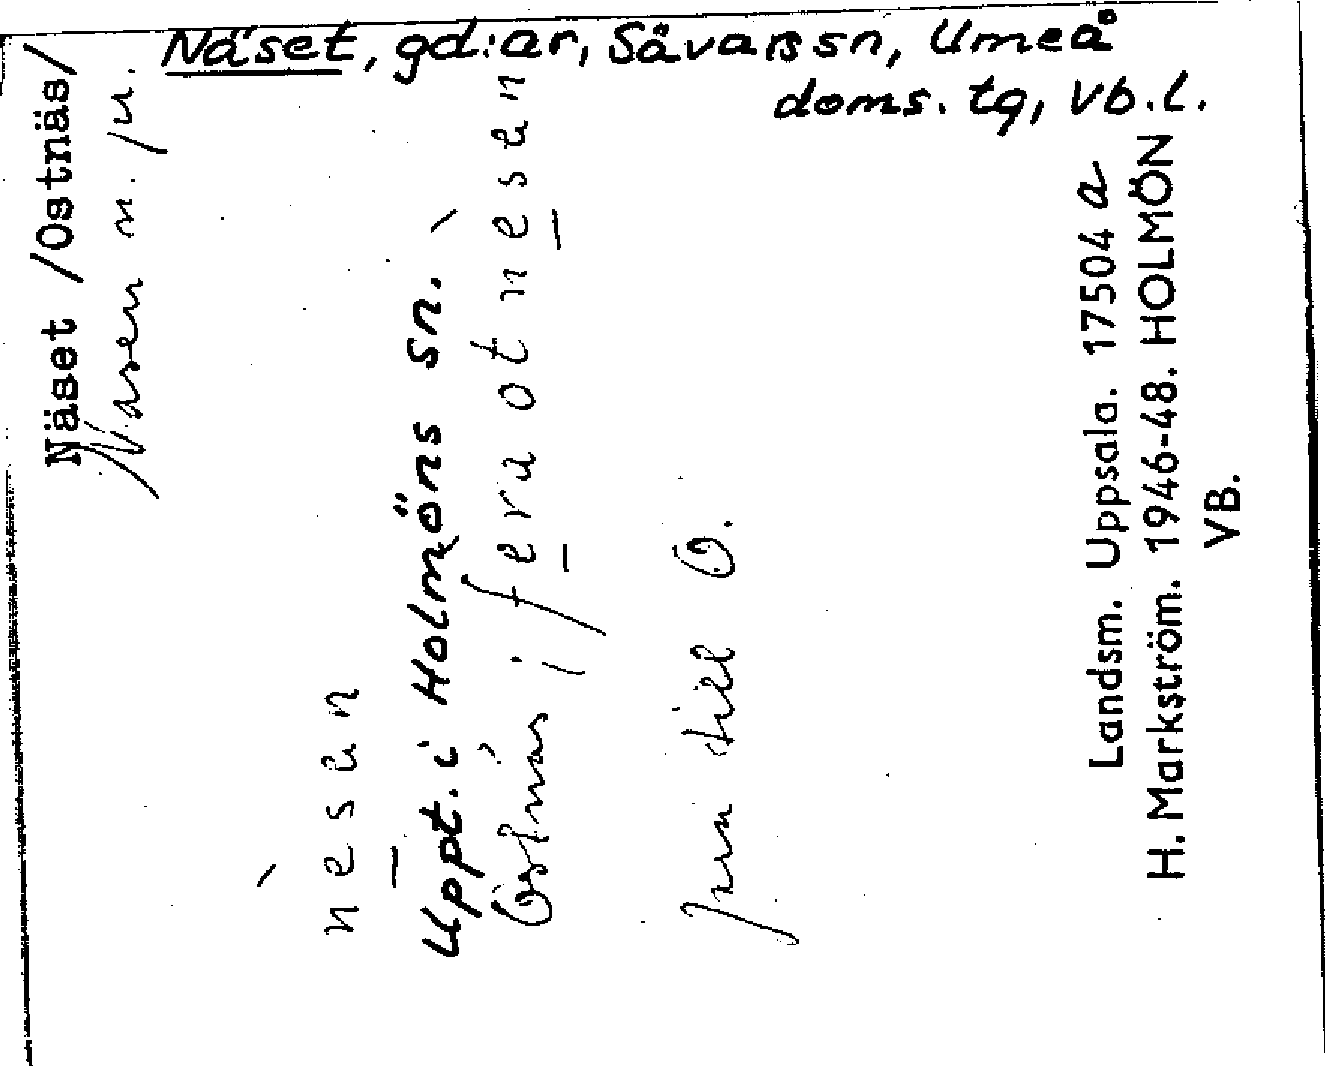 Näset, gd:ar, Sävars sn, Umeå
doms. tg, Vb.l.
Näset /Ostnäs/
Näsen n.
nesän
Uppt. i Holmöns sn.
Östnäs, i f e r ot nesän
till Ö.
Landsm. Uppsala. 17504 a
H. Markström. 1946-48. HOLMÖN
VB.